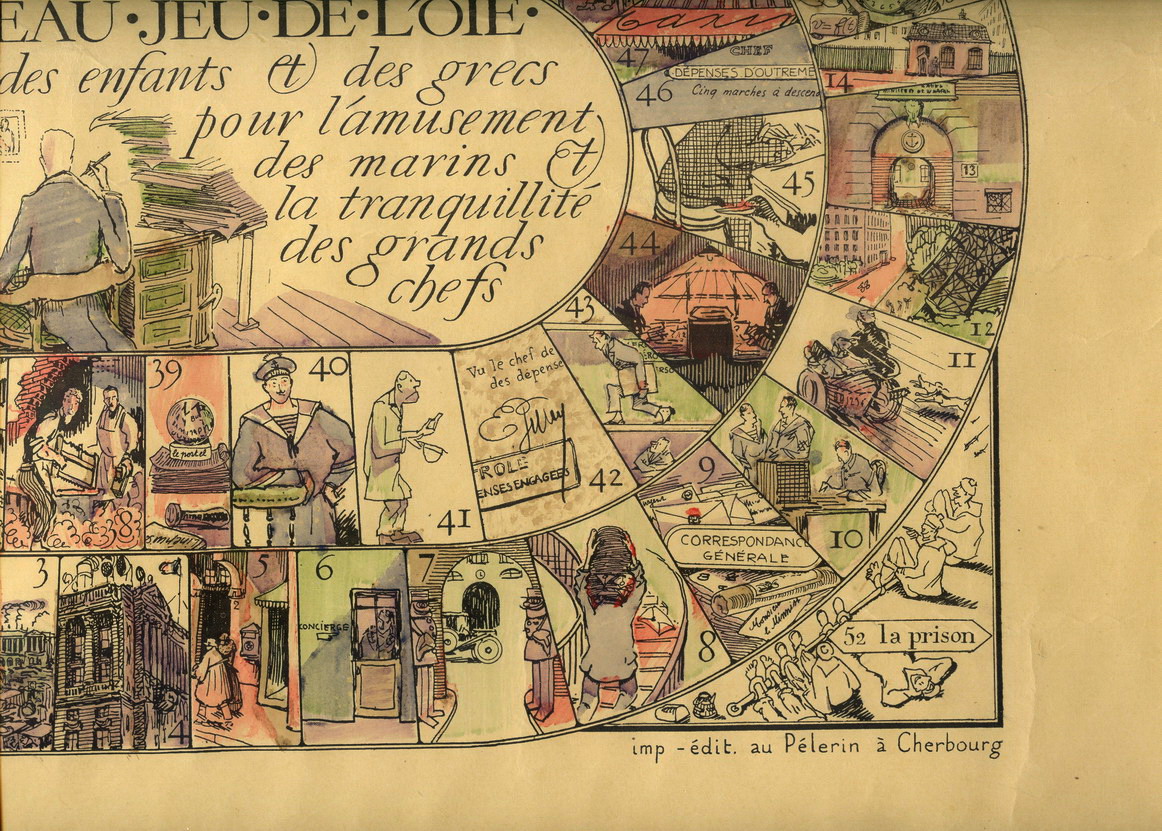 EAU·JEU·DE·L'OIE·
des enfants et des grecs
pour l'amusement
des marins et
la tranquillité
des grands
chefs
47
CHEF
DÉPENSES D'OUTREME
46
Cinq marches à descen
45
44
43
14
13
12
11
Vu le chef de
des dépense
TROLE
ENSES ENGAGEES
42
39
le portel
40
41
38
9
CORRESPONDANCE
GÉNÉRALE
10
3
4
5
6
CONCIERGE
7
8
Monsieur
le Ministre
52 la prison
imp - édit. au Pélerin à Cherbourg